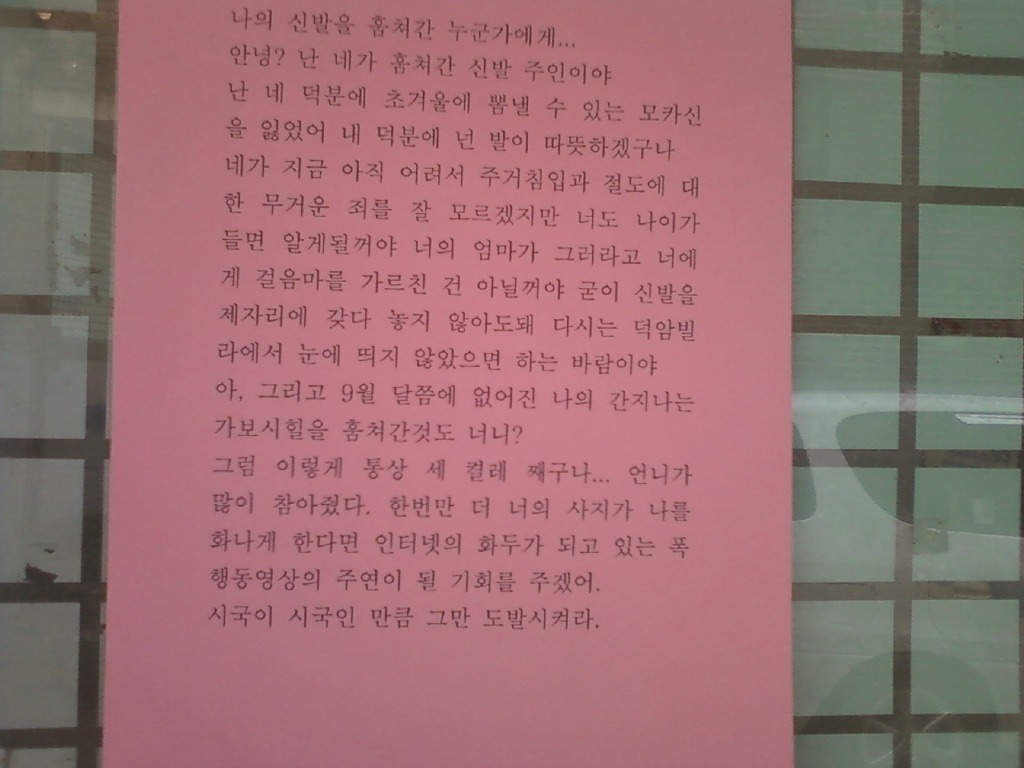 나의 신발을 훔쳐간 누군가에게...
안녕? 난 네가 훔쳐간 신발 주인이야
난 네 덕분에 초겨울에 뽐낼 수 있는 모카신
을 잃었어 내 덕분에 넌 발이 따뜻하겠구나
네가 지금 아직 어려서 주거침입과 절도에 대
한 무거운 죄를 잘 모르겠지만 너도 나이가
들면 알게될꺼야 너의 엄마가 그러라고 너에
게 걸음마를 가르친 건 아닐꺼야 굳이 신발을
제자리에 갖다 놓지 않아도돼 다시는 덕암빌
라에서 눈에 띄지 않았으면 하는 바람이야
아, 그리고 9월 달쯤에 없어진 나의 간지나는
가보시힐을 훔쳐간것도 너니?
그럼 이렇게 통상 세 켤레 째구나... 언니가
많이 참아줬다. 한번만 더 너의 사지가 나를
화나게 한다면 인터넷의 화두가 되고 있는 폭
행동영상의 주연이 될 기회를 주겠어.
시국이 시국인 만큼 그만 도발시켜라.